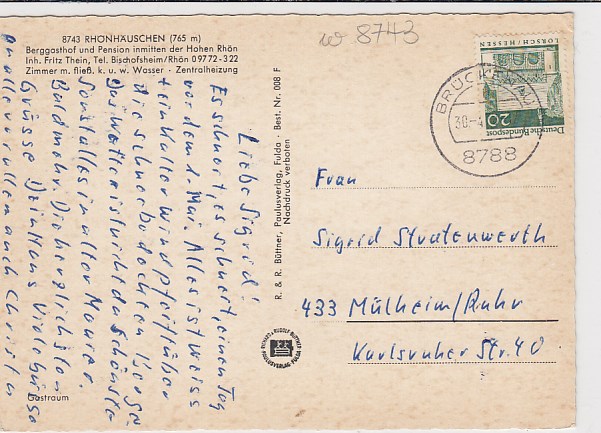 8743 RHÖNHÄUSCHEN (765 m)
Berggasthof und Pension inmitten der Hohen Rhön
Inh. Fritz Thein, Tel. Bischofsheim/Rhön 09772-322
Zimmer m. fließ. k. u. w. Wasser - Zentralheizung
w 8743
LORSCH/HESSEN
Deutsche Bundespost
20
BRÜCKENAU
30.-4
8788
Liebe Sigrid!
Es schneit, es schneit, einen Tag
vor dem 1. Mai. Alles ist weiss
ein kalter Wind pfeift über
die schneebedeckten
Das Wetter ist nicht das Schönste
Sonst alles in alter Manier.
Bad mehr. Die herzlichsten
Grüsse Dein Hans Viele
an alle vor allem auch Christin
R. & R. Büttner, Paulusverlag, Fulda · Best. Nr. 008 F
Nachdruck verboten
Frau
Sigrid Stratenwerth
433 Mülheim/Ruhr
Karlsruher Str. 40
RICHARD + RUDOLF BÜTTNER
PAULUSVERLAG FULDA
Gastraum